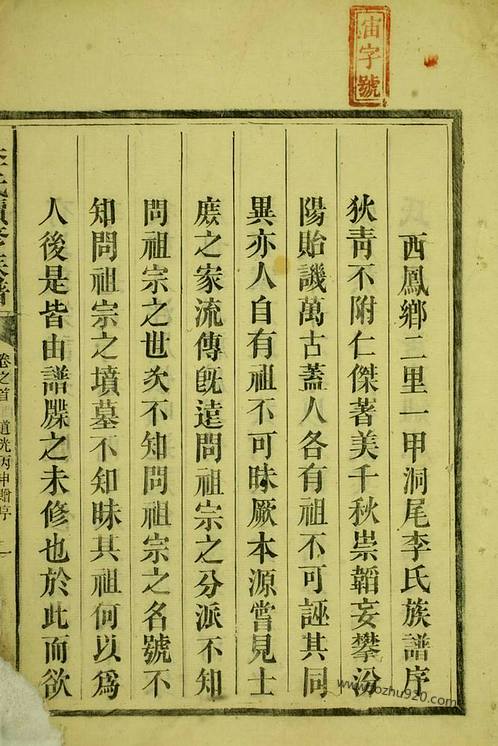 宙字號
西鳳鄉二里一甲洞尾李氏族譜序
狄青不附仁傑著美千秋崇韜妄攀汾
陽貽譏萬古蓋人各有祖不可誣其同
異亦人自有祖不可昧厥本源嘗見士
庶之家流傳旣遠問祖宗之分派不知
問祖宗之世次不知問祖宗之名號不
知問祖宗之墳墓不知昧其祖何以為
人後是皆由譜牒之未修也於此而欲
李氏續修族譜
卷之首 道光丙申贈序 一
www.jiazhu920.com